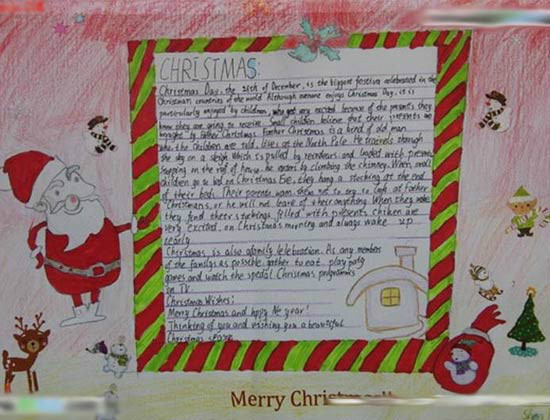 CHRISTMAS:
Christmas Day, the 25th of December, is the biggest festive celebrated in the
Christian countries of the world. Although everyone enjoys Christmas Day, it is
particularly enjoyed by children, who get very excited because of the presents they
know they are going to receive. Small children believe that their presents are
brought by Father Christmas. Father Christmas is a kind of old man
who, the children are told, lives at the North Pole. He travels though
the sky on a sleigh which is pulled by reindeers and loaded with presents
Stopping on the roof of house, he enters by climbing the chimney. When small
children go to bed on Christmas Eve, they hang a stocking at the end
of their bed. Their parents warn them not to try to look at Father
Christmas, or he will not leave of their anything. When they wake
they find their stockings filled with presents. are
very excited on Christmas morning and always wake up
early
Christmas is also a family celebration. As any members
of the family as possible gather to eat, play party
games and watch the special Christmas programmes
in TV.
Christmas Wishes:
Merry Christmas and happy Ne year!
Thinking of you and wishing you a beautiful
Christmas
Merry Christmas!!